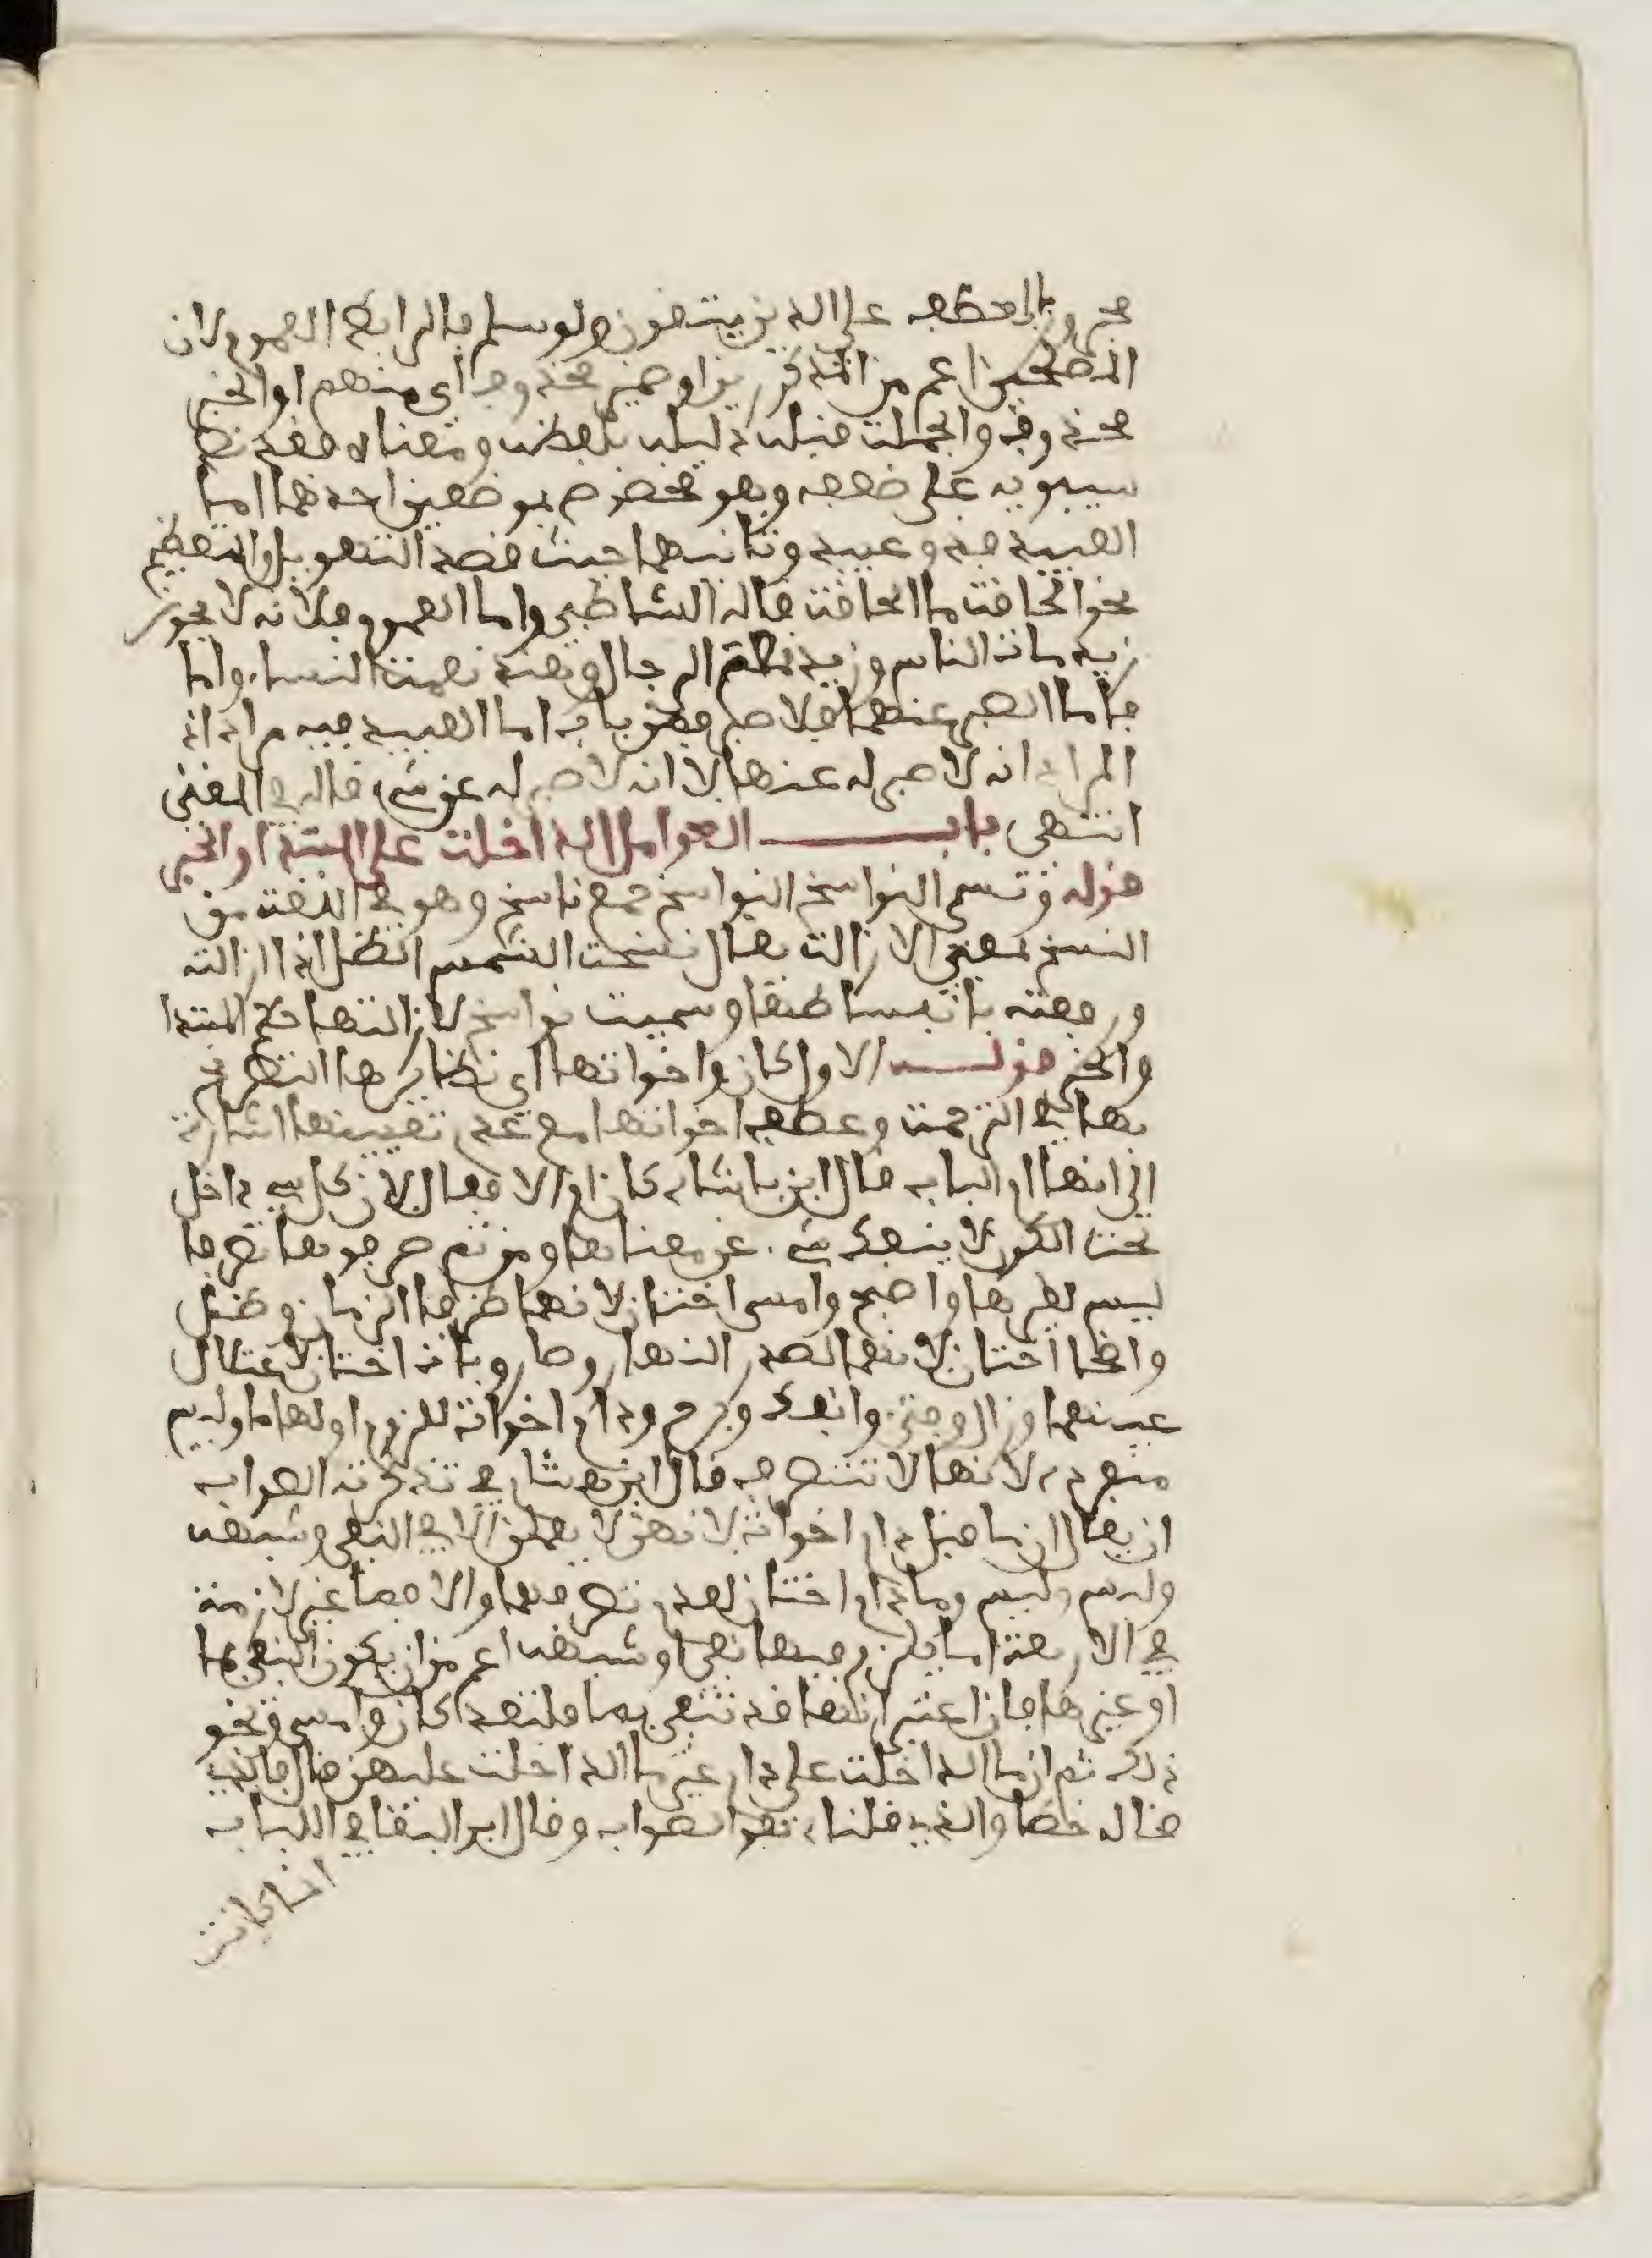 مجرور بالعطف على الذين يتقون ولو سلم فالرابط العموم لان
المصلحين اعم من المذكورين او ضمير محذوف اي منهم او الخبر
محذوف والجملة قبله دليله بلفظه ومعناه فقد نص
سيبويه على ضعفه وهو مخصوص بموضعين احدهما اما
العبيد فذو عبيد وثانيهما حيث قصد التهويل والتعظيم
نحو الحاقة ما الحاقة قاله الشاطبي واما العموم فلانه لا يجوز
زيد مات الناس وزيد نعم الرجال وهند نعمت النساء واما
فاما الصبر عنها فلا صبر فهو باب اما العبيد فيه مراده
المراد انه لا صبر له عنها لا انه لا صبر له عن شيء قاله في المغني
انتهى باب العوامل الداخلة على المبتدا والخبر
قوله وتسمى النواسخ النواسخ جمع ناسخ وهو في اللغة من
النسخ بمعنى الازالة يقال نسخت الشمس الظل اذا ازالته
ورفعته بانبساطها وسميت نواسخ لازالتها حكم المبتدا
والخبر قوله الاول كان واخواتها اي نظائرها التصريح
بها في الترجمة وعطف اخواتها مع عدم تعيينها اشارة
الى انها ام الباب قال ابن بابشاذ كان ام الافعال لان كل شيء داخل
تحت الكون لا ينفك شيء عن معناها ومن ثم صرفوها تصرفا
ليس لغيرها واصبح وامسى اختان لانهما طرفا الزمان وظل
واضحى اختان لانهما لصدر النهار وصار وبات اختان لاعتلال
عينهما وزال وفتئ وانفك وبرح ودام اخوات للزوم اولها ما وليس
منفردة لانها لا تتصرف قال ابن هشام في تذكرته الصواب
ان يقال ان ما قبل دام اخوات لانهن لا يعملن الا في النفي وشبهه
وليس وما دام اختان لعدم تصرفهما والافصاح غير لازمة
في الاربعة انما يلزم فيها نفي او شبهه اعم من ان يكون النفي بما
او غيرها فان اعتبر انها قد تنفى بما فلتعد كان وامسى ونحو
ذلك ثم ان ما الداخلة على دام غير ما الداخلة عليهن قال فالذي
قاله خطا والذي قلناه هو الصواب وقال ابو البقاء في اللباب
انما كانت